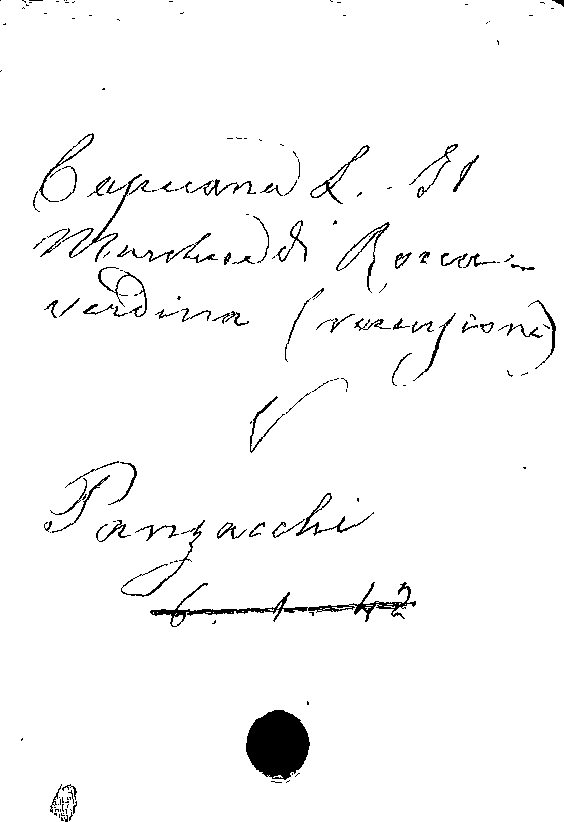 Capuana L. - Il
Marchese di Rocca-
verdina (recensione)
V
Panzacchi
6. 1. 42